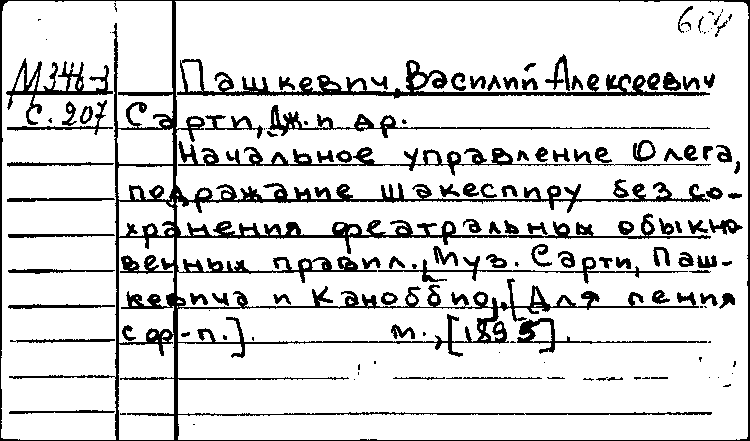 604
М346-3 Пашкевич, Василий Алексеевич
с. 207 Сарти, Дж. и др.
Начальное управление Олега,
подражание шакеспиру без со-
хранения феатральных обыкно
венных правил., Муз. Сарти, Паш-
кевича и Каноббио. [Для пения
с ф-п.]. М., [1895].